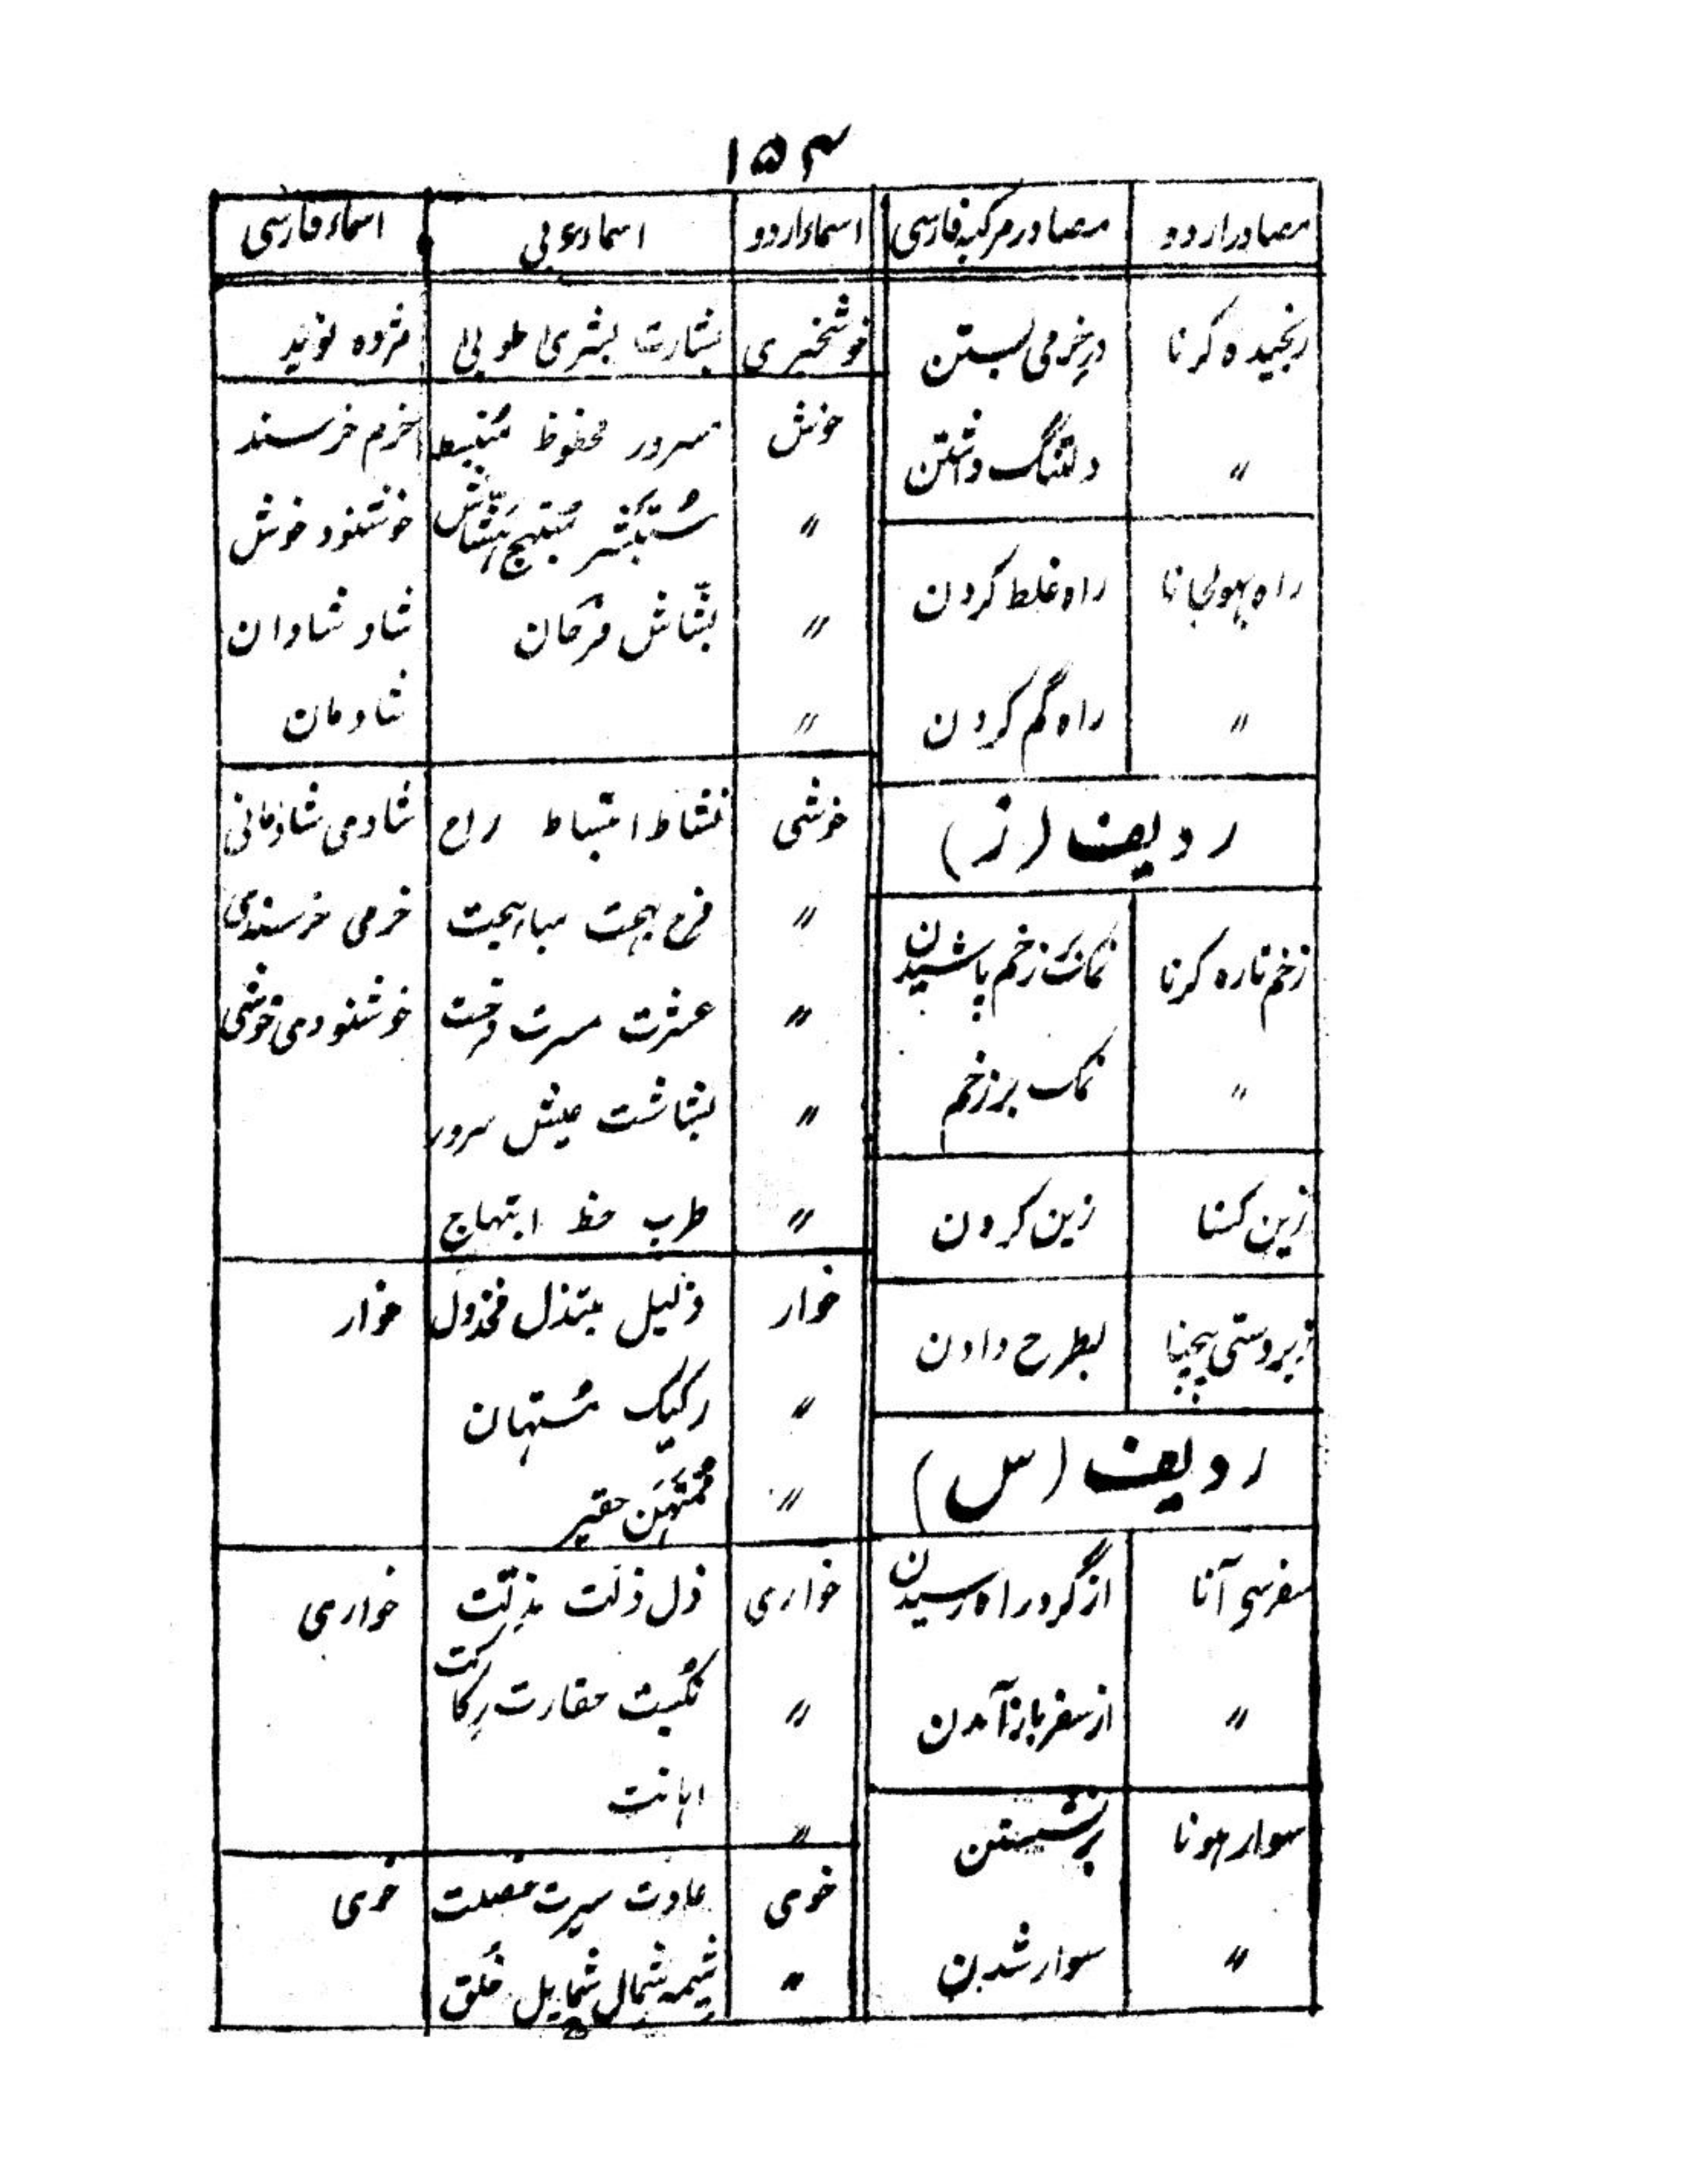 ۱۵۴
مصادر اردو | مصادر مرکبہ فارسی | اسماء اردو | اسماء عربی | اسماء فارسی
رنجیدہ کرنا | در خرمی بستن
〃 | دلتنگ داشتن
راہ بھولجانا | راہ غلط کردن
〃 | راہ گم کردن
ردیف (ز)
زخم تازہ کرنا | نمک بر زخم پاشیدن
〃 | نمک بر زخم
زین کسنا | زین کردن
زبردستی بیچنا | بطرح دادن
ردیف (س)
سفر سی آنا | از گرد راہ رسیدن
〃 | از سفر باز آمدن
سوار ہونا | بر نشستن
〃 | سوار شدن
خوشخبری | بشارت بشریٰ طوبیٰ | مژدہ نوید
خوش | مسرور محظوظ منبسط | خرم خرسند
〃 | مُستبشر مبتہج | خوشنود خوش
〃 | بشّاش فرحان | شاد شادان
〃 | شادمان
خوشی | نشاط انبساط راح | شادی شادمانی
〃 | فرح بہجت مباہجت | خرمی خرسندی
〃 | عشرت مسرت فرحت | خوشنودی خوشی
〃 | بشاشت عیش سرور
〃 | طرب حظ ابتہاج
خوار | ذلیل مبتذل مخذول | خوار
〃 | رکیک مُستہان
〃 | مُمتَہَن حقیر
خواری | ذل ذلت مذلّت | خواری
〃 | نکبت حقارت رکاکت
〃 | اہانت
خوی | عادت سیرت خصلت | خوی
〃 | شیمہ شمال شمایل خُلق